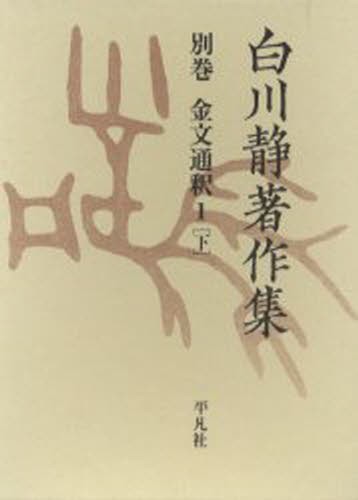 白川静著作集
別巻 金文通釈 1[下]
平凡社